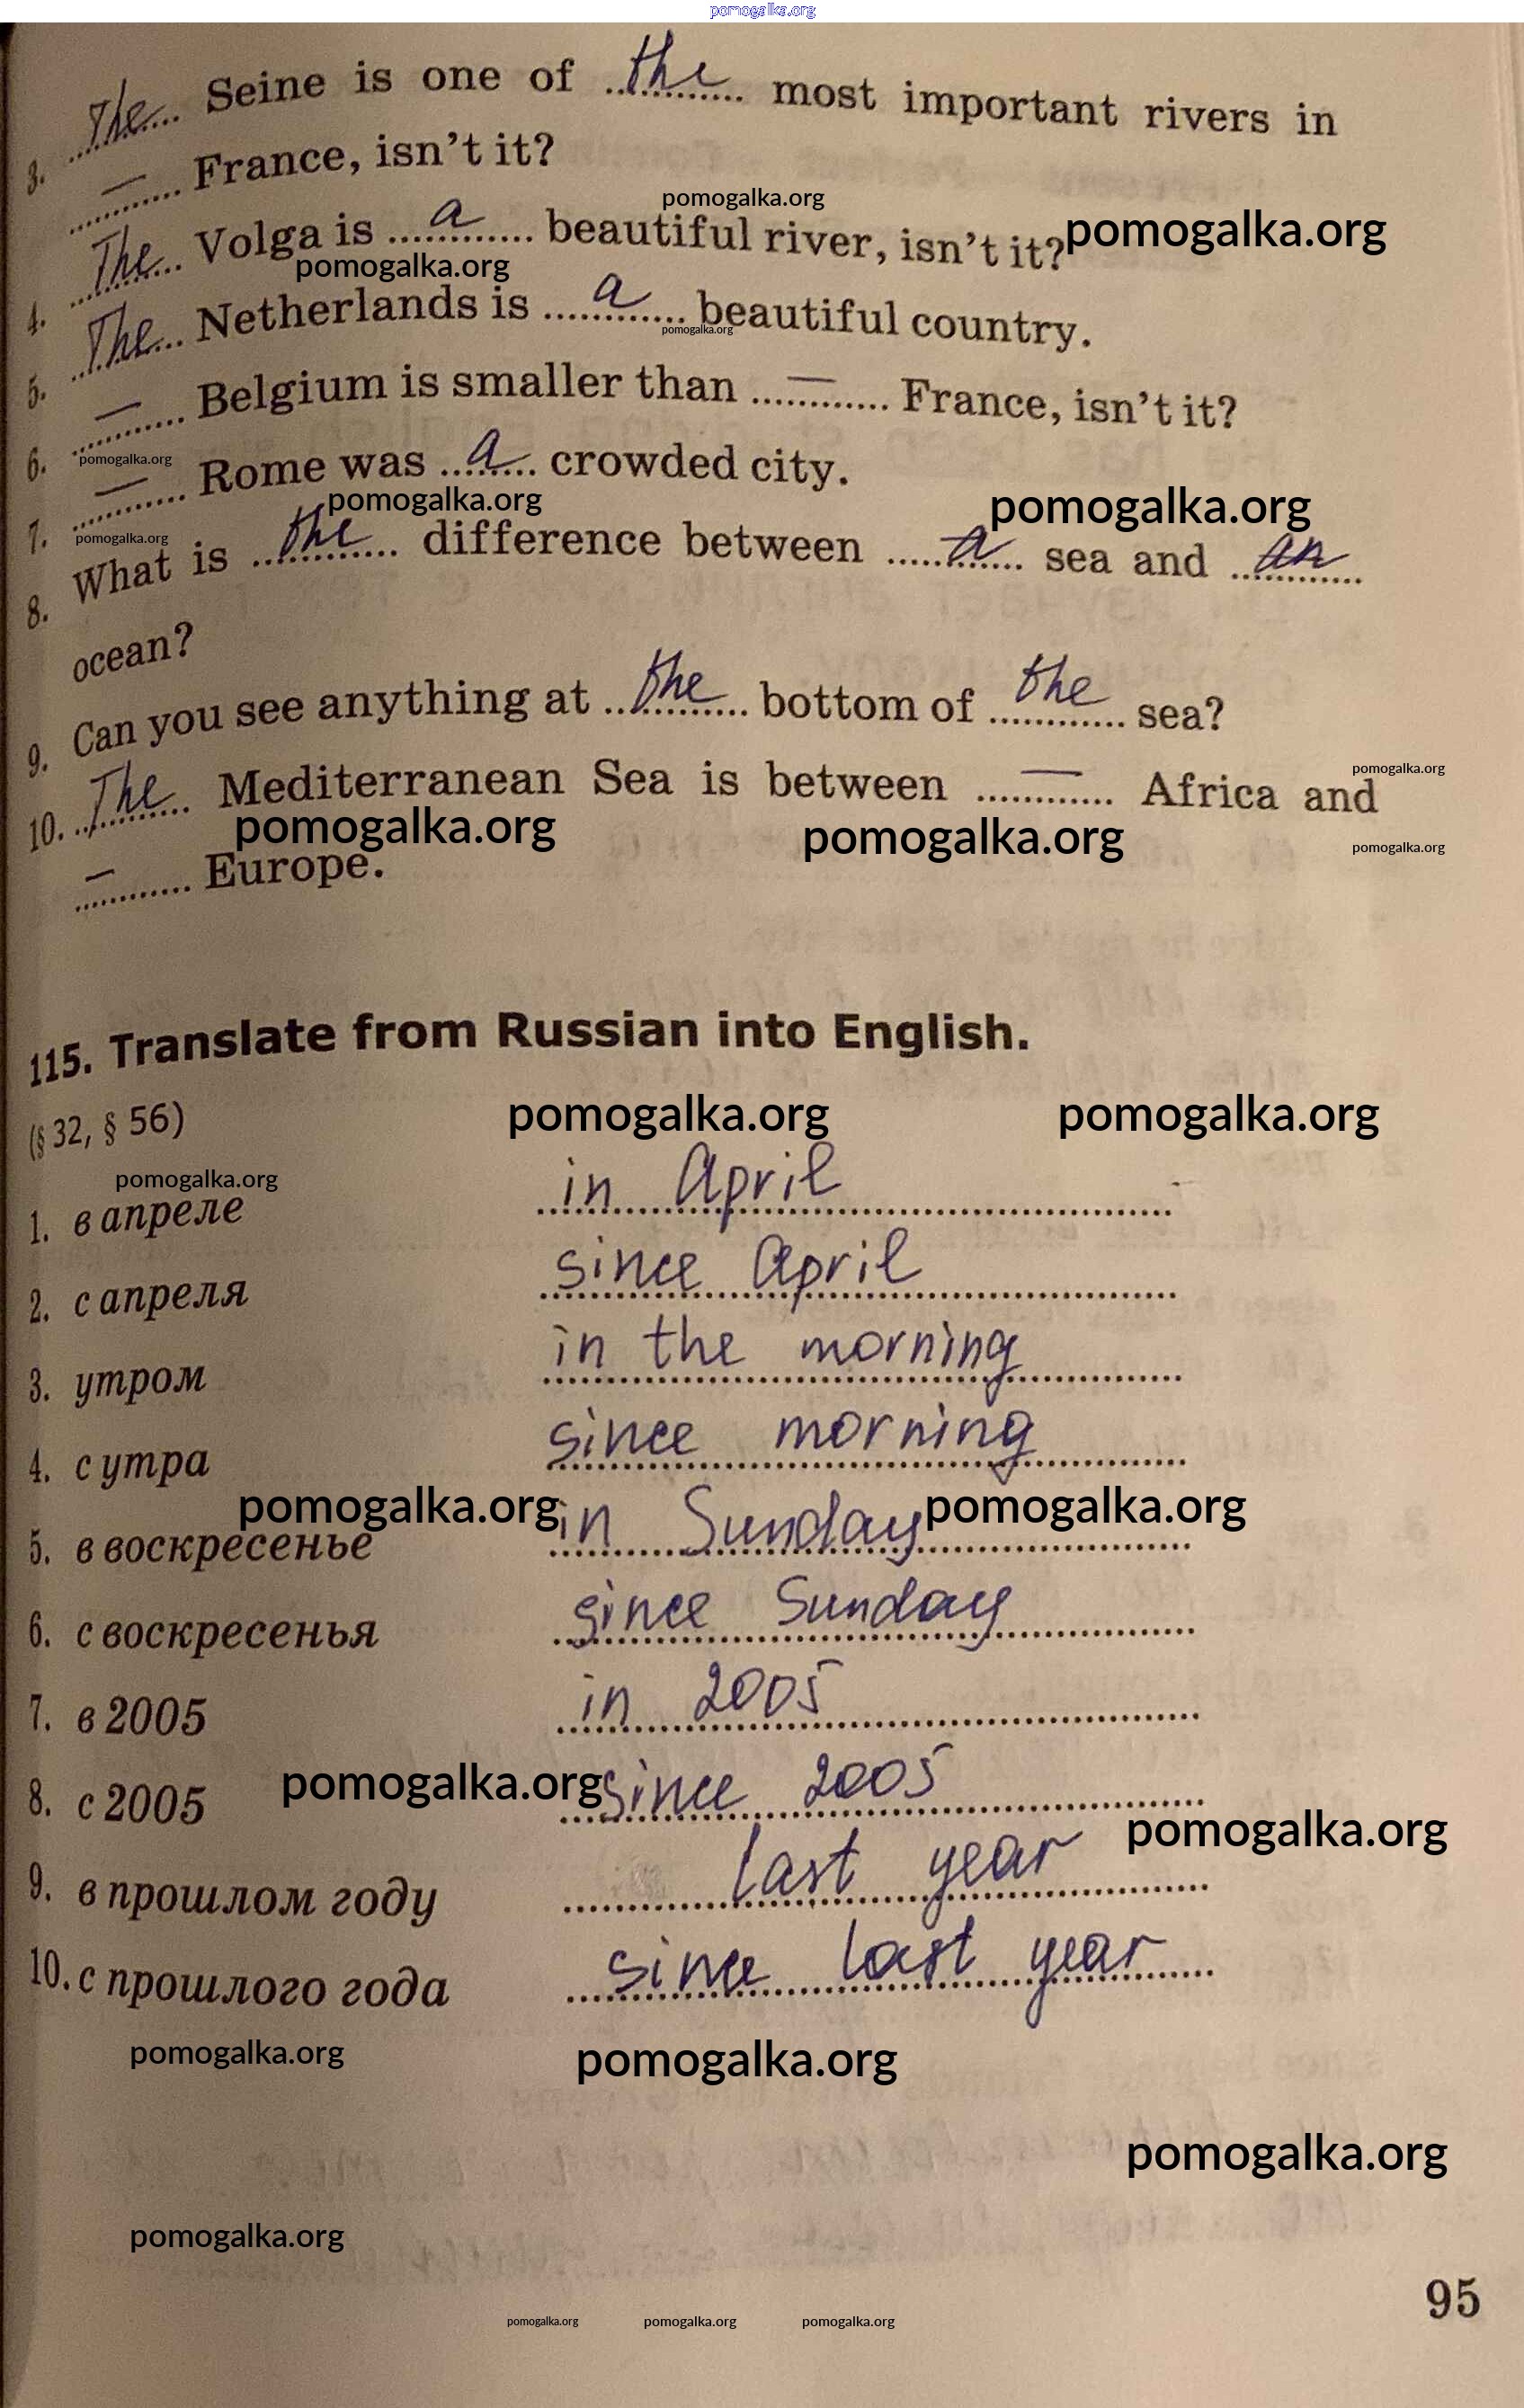 pomogalka.org
3. The Seine is one of the most important rivers in
— France, isn't it?
pomogalka.org
4. The Volga is a beautiful river, isn't it? pomogalka.org
pomogalka.org
5. The Netherlands is a beautiful country.
pomogalka.org
6. — Belgium is smaller than — France, isn't it?
pomogalka.org
7. — Rome was a crowded city.
pomogalka.org pomogalka.org
pomogalka.org
8. What is the difference between a sea and an
ocean?
9. Can you see anything at the bottom of the sea?
pomogalka.org
10. The Mediterranean Sea is between — Africa and
pomogalka.org pomogalka.org pomogalka.org
— Europe.
115. Translate from Russian into English.
(§ 32, § 56)
pomogalka.org pomogalka.org
pomogalka.org
1. в апреле in April
2. с апреля since April
3. утром in the morning
4. с утра since morning
pomogalka.org pomogalka.org
5. в воскресенье in Sunday
6. с воскресенья since Sunday
7. в 2005 in 2005
pomogalka.org
8. с 2005 since 2005
pomogalka.org
9. в прошлом году last year
10. с прошлого года since last year
pomogalka.org pomogalka.org
pomogalka.org
pomogalka.org
95
pomogalka.org pomogalka.org pomogalka.org